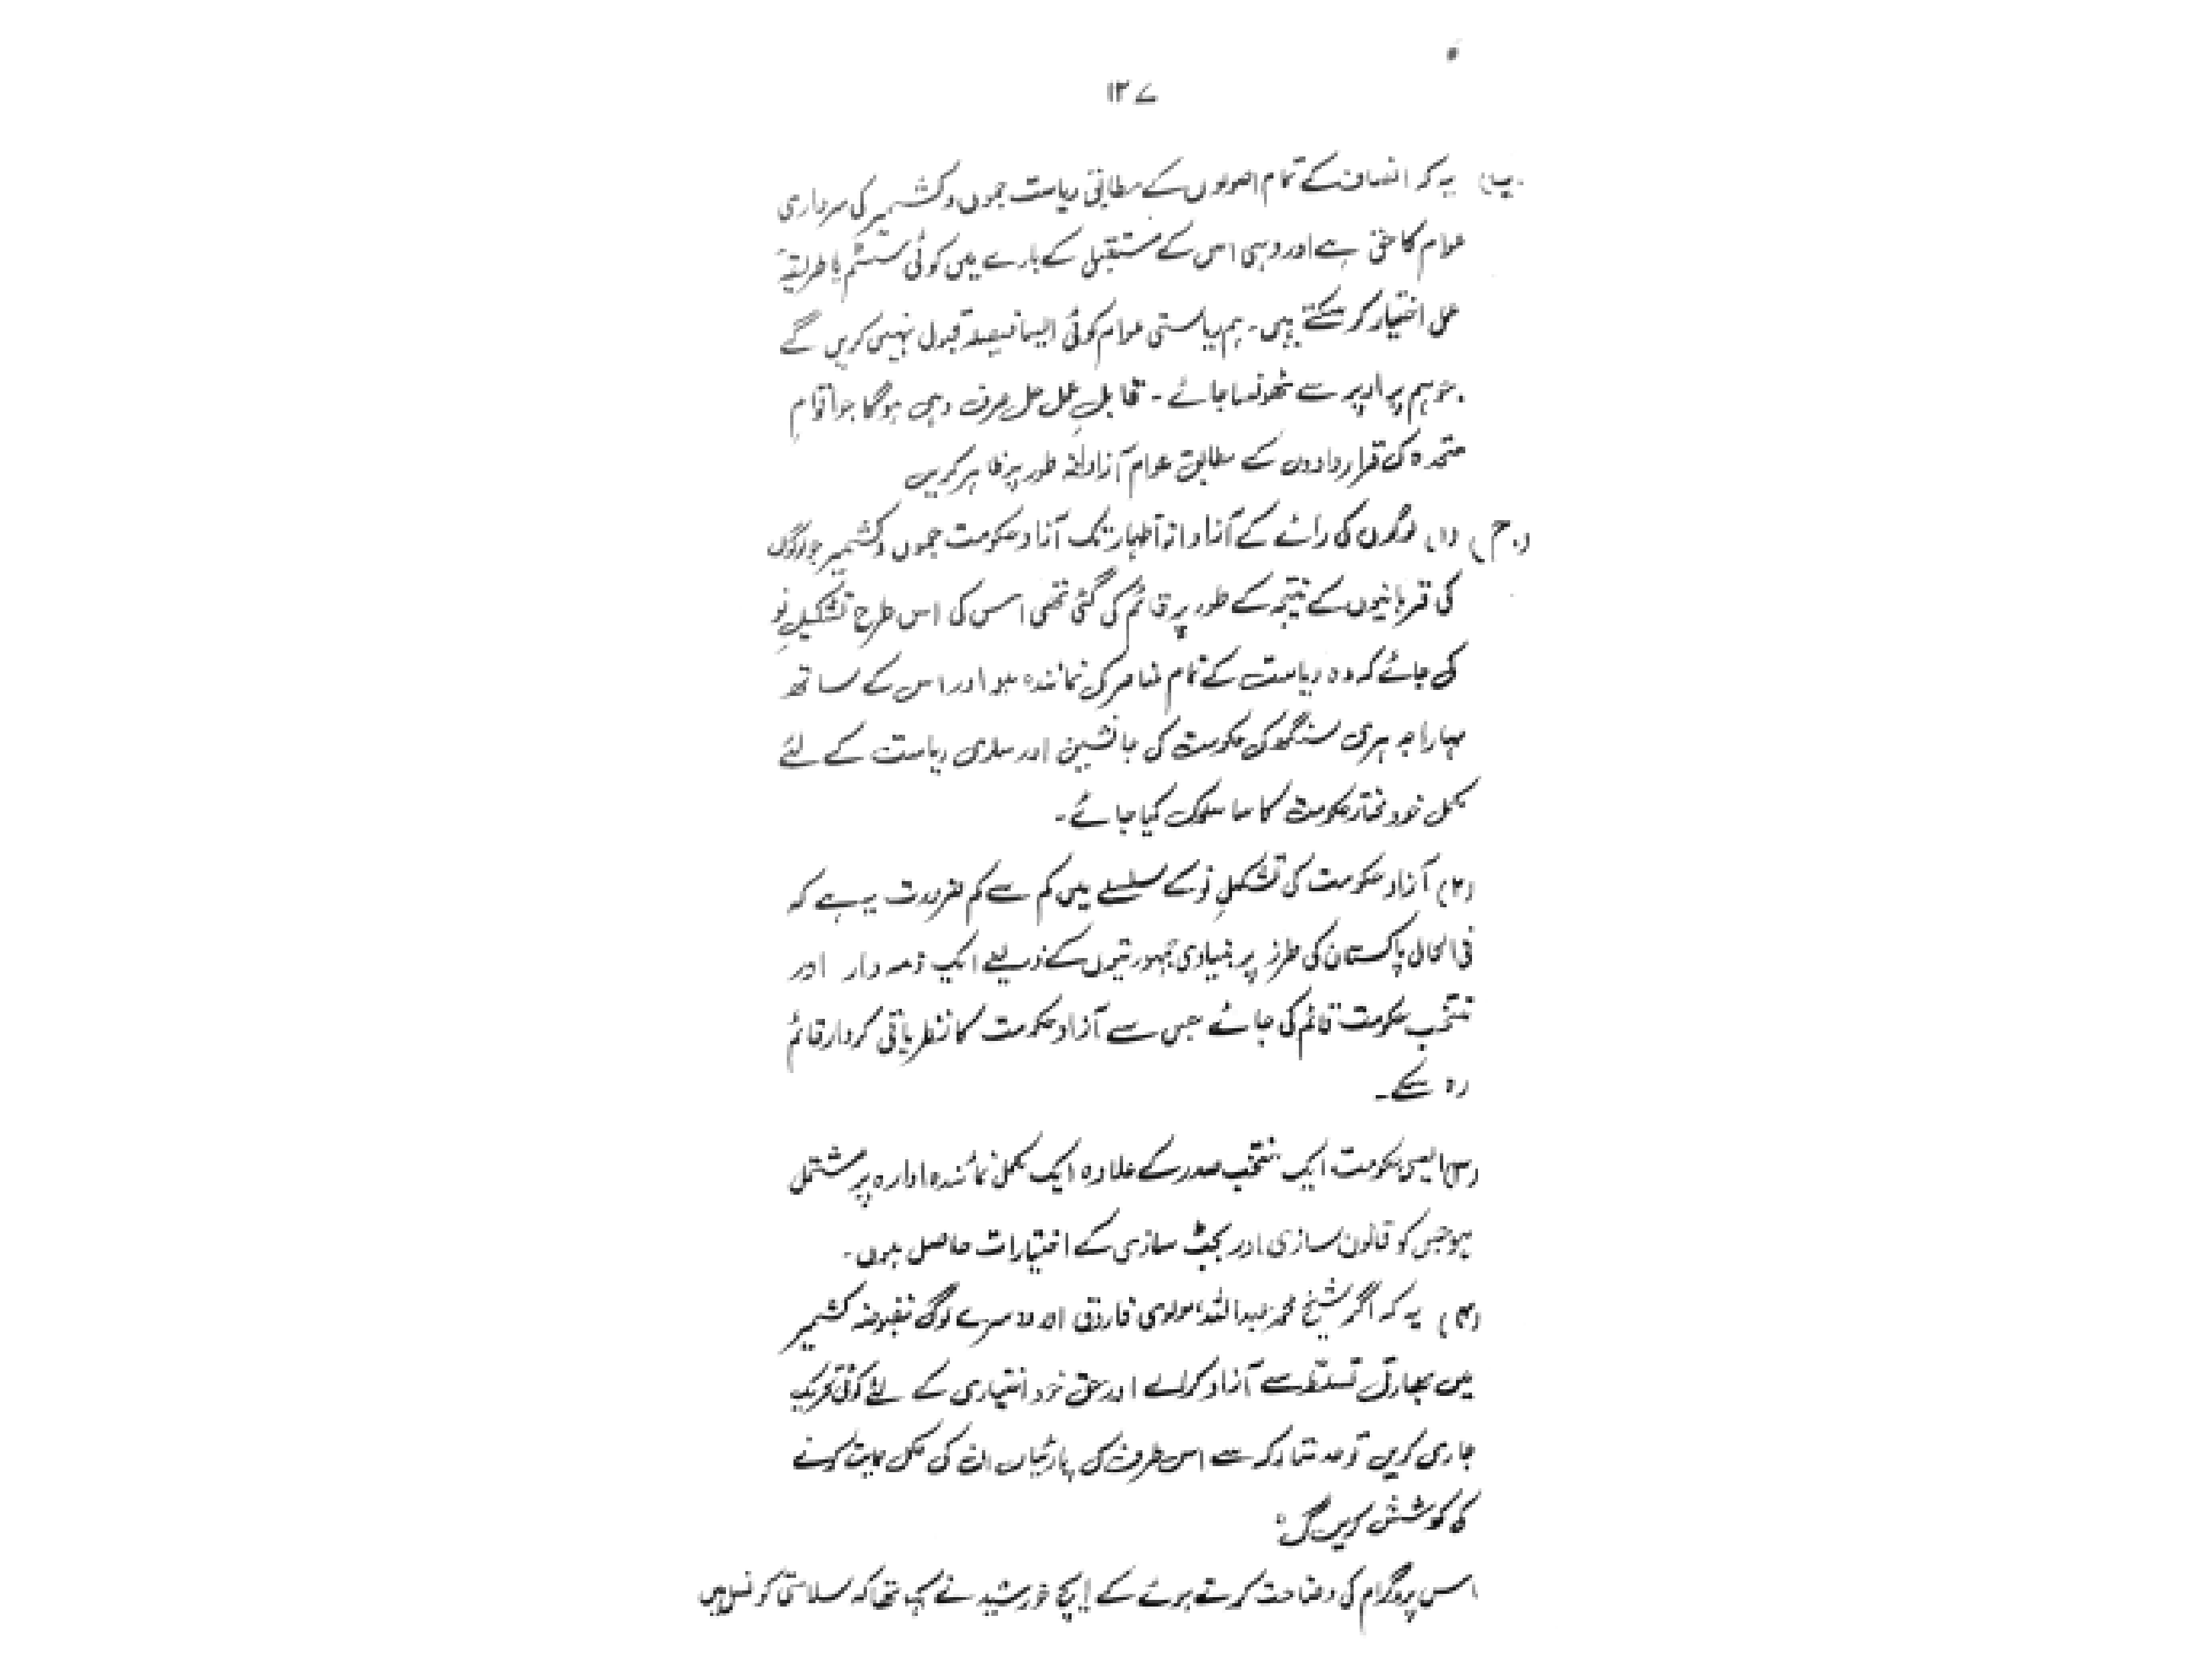 ۱۲۷
(ب) یہ کہ انصاف کے تمام اصولوں کے مطابق ریاست جموں وکشمیر کی سرداری
عوام کا حق ہے اور وہی اس کے مستقبل کے بارے میں کوئی سسٹم یا طریقہ
عمل اختیار کر سکتے ہیں۔ ہم ریاستی عوام کوئی ایسا فیصلہ قبول نہیں کریں گے
جو ہم پر اوپر سے ٹھونسا جائے۔ قابلِ عمل حل صرف وہی ہوگا جو اقوامِ
متحدہ کی قراردادوں کے مطابق عوام آزادانہ طور پر ظاہر کریں
(ج) (۱) لوگوں کی رائے کے آزادانہ اظہار تک آزاد حکومت جموں وکشمیر جو لوگوں
کی قربانیوں کے نتیجہ کے طور پر قائم کی گئی تھی اس کی اس طرح تشکیلِ نو
کی جائے کہ وہ ریاست کے تمام عناصر کی نمائندہ ہو اور اس کے ساتھ
مہاراجہ ہری سنگھ کی حکومت کی جانشین اور ساری ریاست کے لئے
مکمل خود مختار حکومت کا سا سلوک کیا جائے۔
(۲) آزاد حکومت کی تشکیلِ نو کے سلسلے میں کم سے کم ضرورت یہ ہے کہ
فی الحال پاکستان کی طرز پر بنیادی جمہوریتوں کے ذریعے ایک ذمہ دار اور
منتخب حکومت قائم کی جائے جس سے آزاد حکومت کا نظریاتی کردار قائم
رہ سکے۔
(۳) ایسی حکومت ایک منتخب صدر کے علاوہ ایک مکمل نمائندہ ادارہ پر مشتمل
ہو جس کو قانون سازی اور بجٹ سازی کے اختیارات حاصل ہوں۔
(۴) یہ کہ اگر شیخ محمد عبداللہ، مولوی فاروق اور دوسرے لوگ مقبوضہ کشمیر
میں بھارتی تسلط سے آزاد کرانے اور حق خود اختیاری کے لئے کوئی تحریک
جاری کریں تو حد متارکہ سے اس طرف کی پارٹیاں ان کی مکمل حمایت کرنے
کی کوشش کریں گی"
اس پروگرام کی وضاحت کرتے ہوئے کے ایچ خورشید نے کہا تھا کہ سلامتی کونسل میں